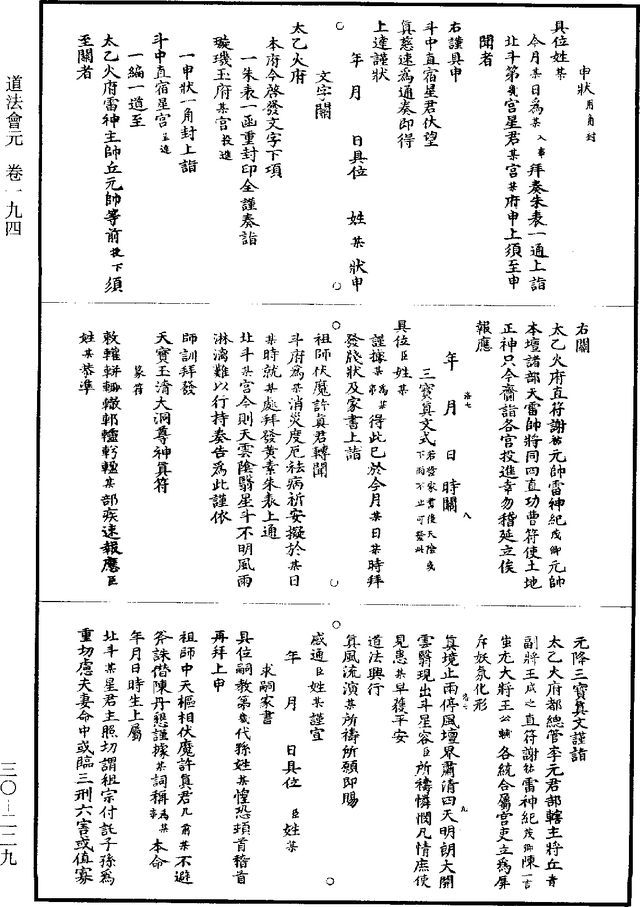 道法會元　卷一九四
三〇—二二九
申狀用角封
具位姓某
今月某日爲某入事拜奏朱表一通上詣
北斗第幾宮星君某宮某府申上須至申
聞者
右謹具申
斗中直宿星君伏望
眞慈速爲通奏即得
上達謹狀
年　月　日具位　姓某狀申
文字關
太乙火府
本府今啓發文字下項
一朱表一函重封印全謹奏詣
璇璣玉府某宮投進
一申狀一角封上詣
斗中直宿星宮
一編一道至
太乙火府雷神主帥丘元帥等前投下須
至關者
右關
太乙火府直符謝元帥雷神紀元帥
本壇諸部天雷帥將同四直功曹符使土地
正神只今齎詣各宮投進幸勿稽延立俟
報應
年　月　日　時關
三寶眞文式若發家書後天陰或下雨不止可發此
具位臣姓某
謹據某爲某得此已於今月某日某時拜
發牒狀及家書上詣
祖師伏魔許眞君轉聞
斗府爲某消災度厄祛病祈安擬於某日
某時就某處拜發黄素朱表上通
北斗某宮今則天雲陰翳星斗不明風雨
淋漓難以行持奏告爲此謹依
師訓拜發
天寶玉清大洞尊神眞符
篆符
某部疾速報應臣
姓某恭準
元降三寶眞文謹詣
太乙火府都總管李元君部轄主將丘青
副將王成之直符謝雷神紀陳一言
蚩尤大將王各統合屬官吏立爲屏
斥妖氛化形
眞境止雨停風壇界肅清四天明朗大開
雲翳現出斗星容臣所禱憐憫凡情庶使
見患某早獲平安
道法興行
眞風流演某所禱所願即賜
感通臣姓某謹宣
年　月　日具位　臣姓某
求嗣家書
具位嗣教第幾代孫姓某惶恐頓首稽首
再拜上申
祖師中天樞相伏魔許眞君几前某不避
斧誅僭陳丹懇謹據某詞稱爲某事本命
年月日時生上屬
北斗某星君主照切謂祖宗付託子孫爲
重切慮夫妻命中或臨三刑六害或值寡